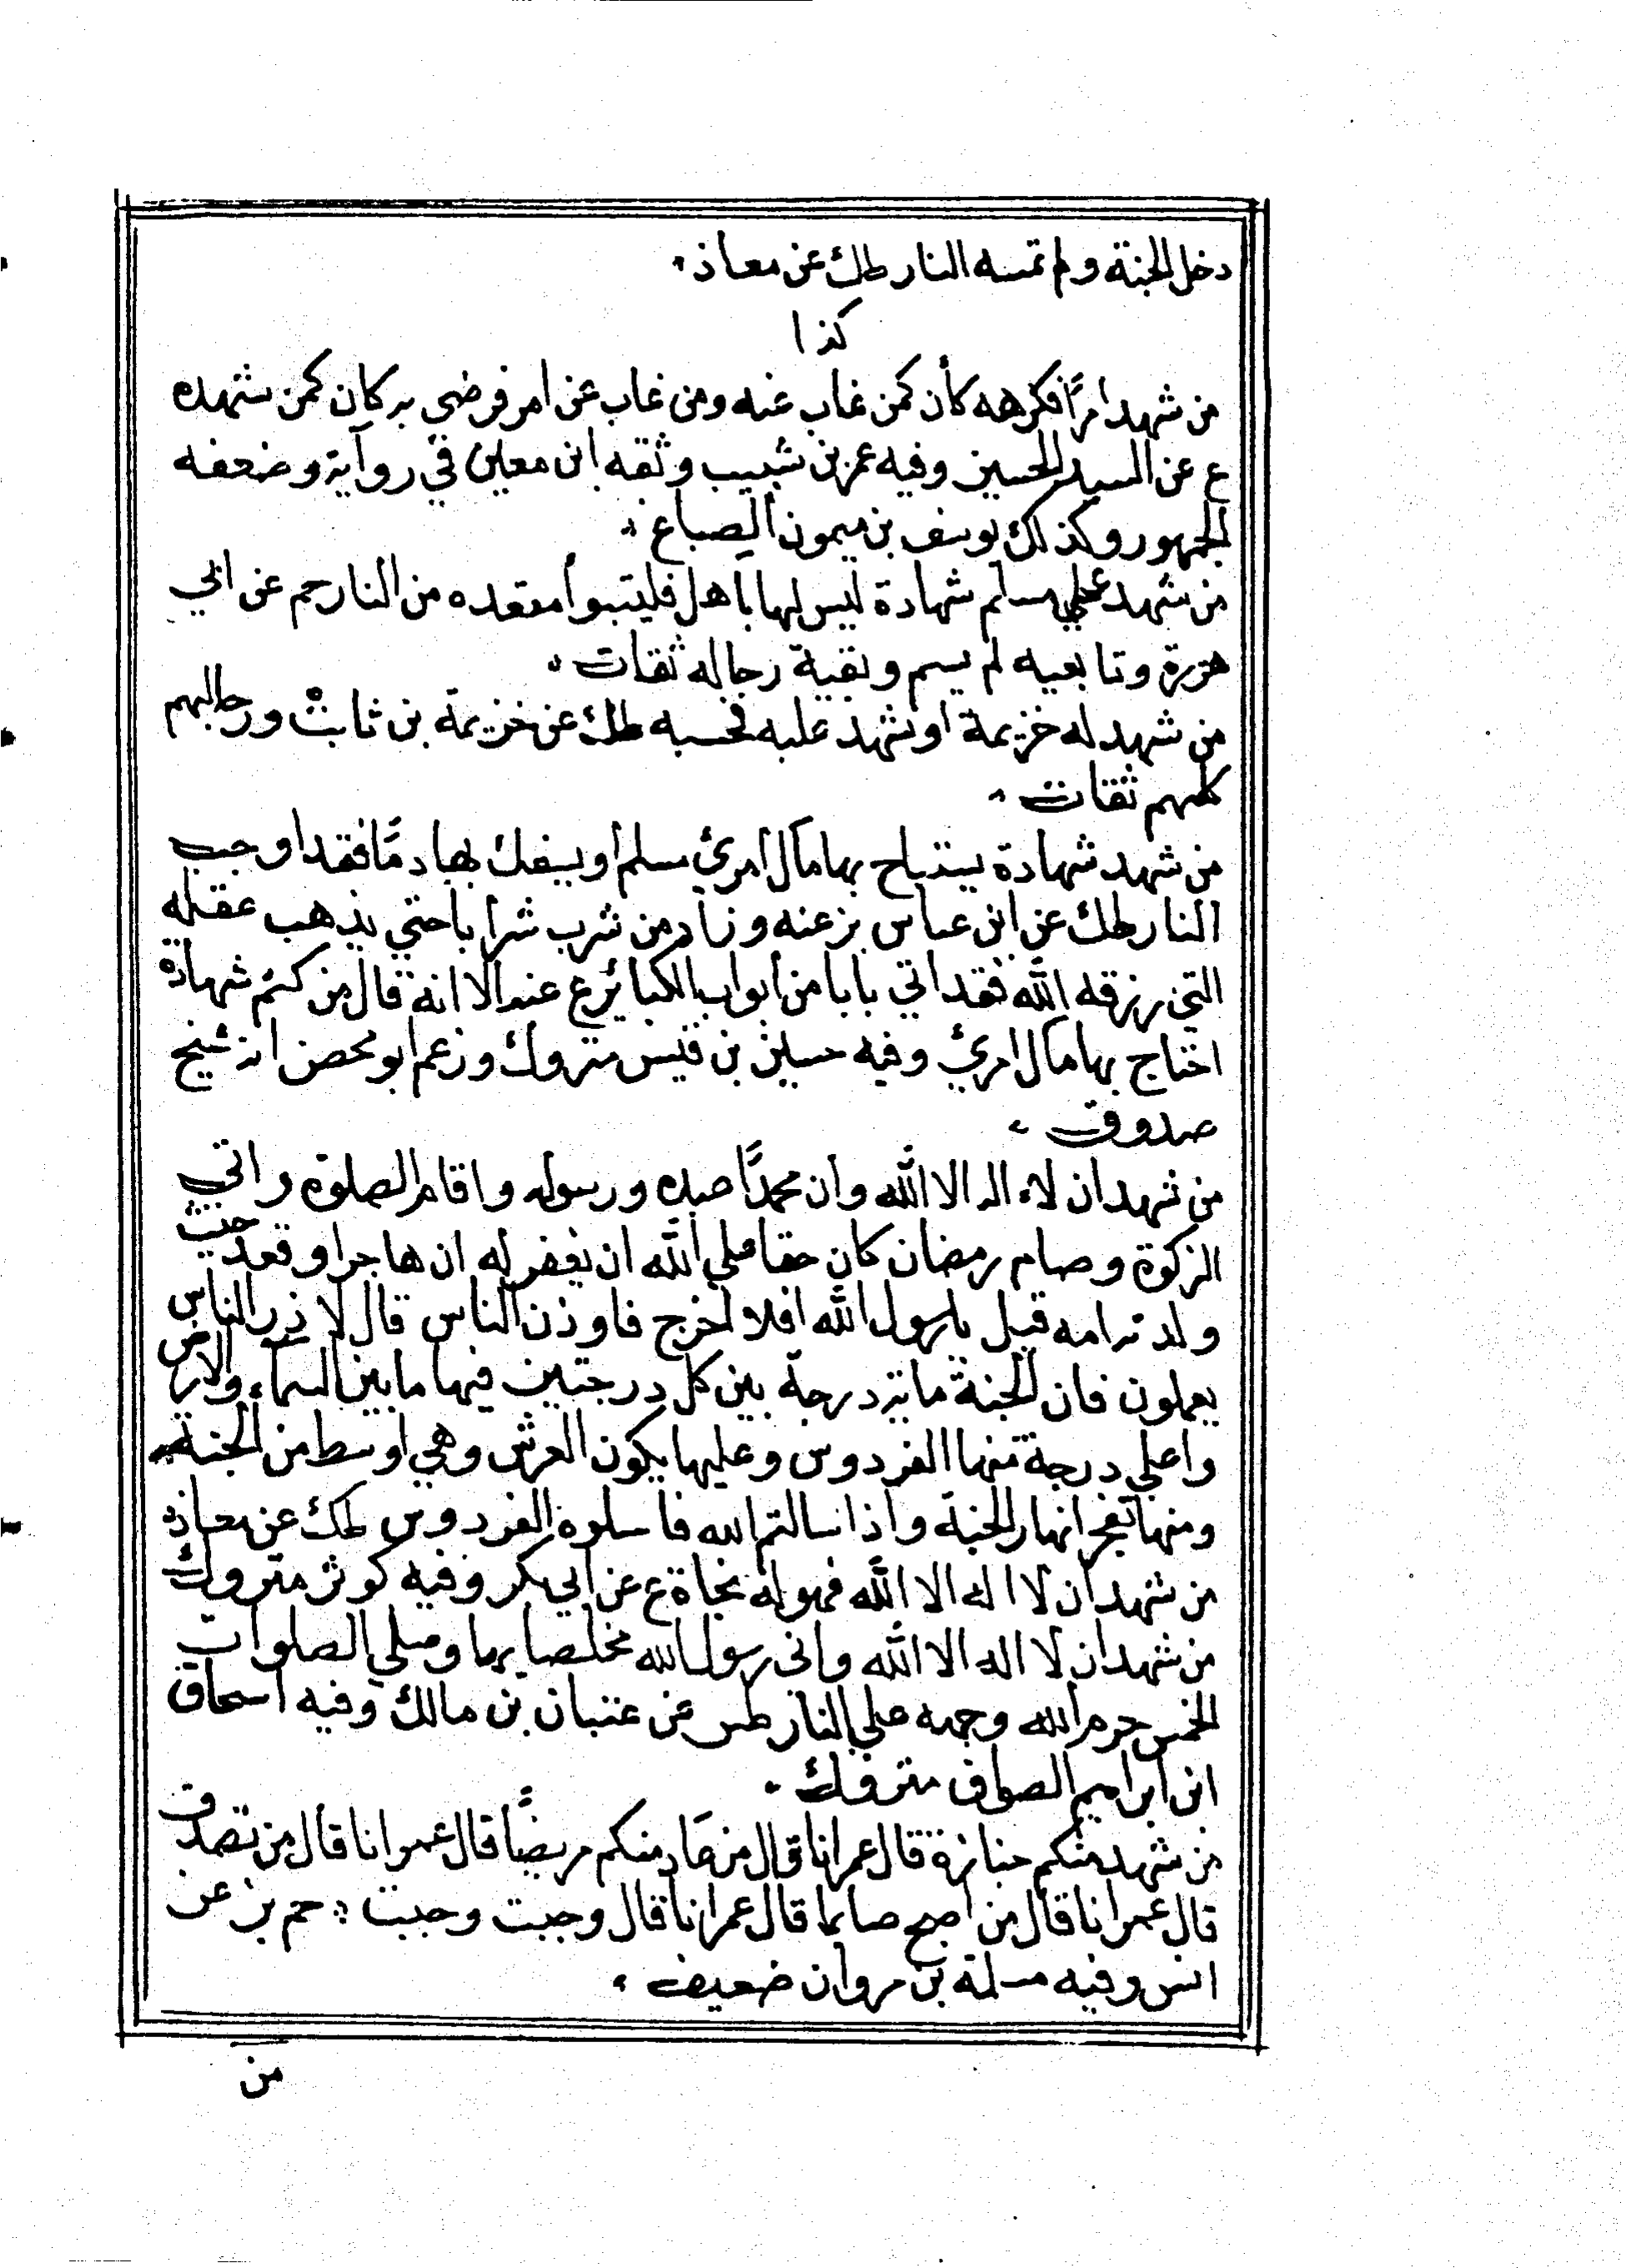 دخل الجنة ولم تمسه النار طك عن معاذ ،
كذا
من شهد امرًا فكرهه كأن كمن غاب عنه ومن غاب عن امر فرضي به كان كمن شهده
ع عن السيد الحسين وفيه عمر بن شبيب وثقه ابن معين في رواية وضعفه
الجمهور وكذلك يوسف بن ميمون الصباغ ،
من شهد علي مسلم شهادة ليس لها باهل فليتبوأ مقعده من النار حم عن ابي
هريرة وتابعيه لم يسم وبقية رجاله ثقات ،
من شهد له خزيمة او شهد عليه فحسبه طك عن خزيمة بن ثابت ورجالهم
كلهم ثقات ،
من شهد شهادة يستباح بها مال امرئ مسلم او يسفك بها دمًا فقد اوجب
النار طك عن ابن عباس بز عنه وزاد من شرب شرابا حتي يذهب عقله
التي رزقه الله فقد اتي بابا من ابواب الكبائر ع عنه الا انه قال من كتم شهادة
اجتاح بها مال امرئ وفيه حسين بن قيس متروك وزعم ابو محصن انه شيخ
صدوق ،
من شهد ان لا اله الا الله وان محمدًا عبده ورسوله واقام الصلوة واتي
الزكوة وصام رمضان كان حقا علي الله ان يغفر له ان هاجر او قعد حيث
ولدته امه قيل يا رسول الله افلا اخرج فاوذن الناس قال لا ذر الناس
يعملون فان الجنة مائة درجة بين كل درجتين فيها ما بين السماء والارض
واعلي درجة منها الفردوس وعليها يكون العرش وهي اوسط من الجنة
ومنها تفجر انهار الجنة واذا سالتم الله فاسلوه الفردوس طك عن معاذ
من شهد ان لا اله الا الله فهو له نجاة ع عن ابي بكر وفيه كوثر متروك
من شهد ان لا اله الا الله واني رسول الله مخلصا بهما وصلي الصلوات
الخمس حرم الله وجهه علي النار طس عن عتبان بن مالك وفيه اسحاق
ابن ابراهيم الصواف متروك ،
من شهد منكم جنازة قال عمر انا قال من عاد منكم مريضًا قال عمر انا قال من تصدق
قال عمر انا قال من اصبح صايما قال عمر انا قال وجبت وجبت ؛ حم بز عن
انس وفيه مسلمة بن مروان ضعيف ،
من